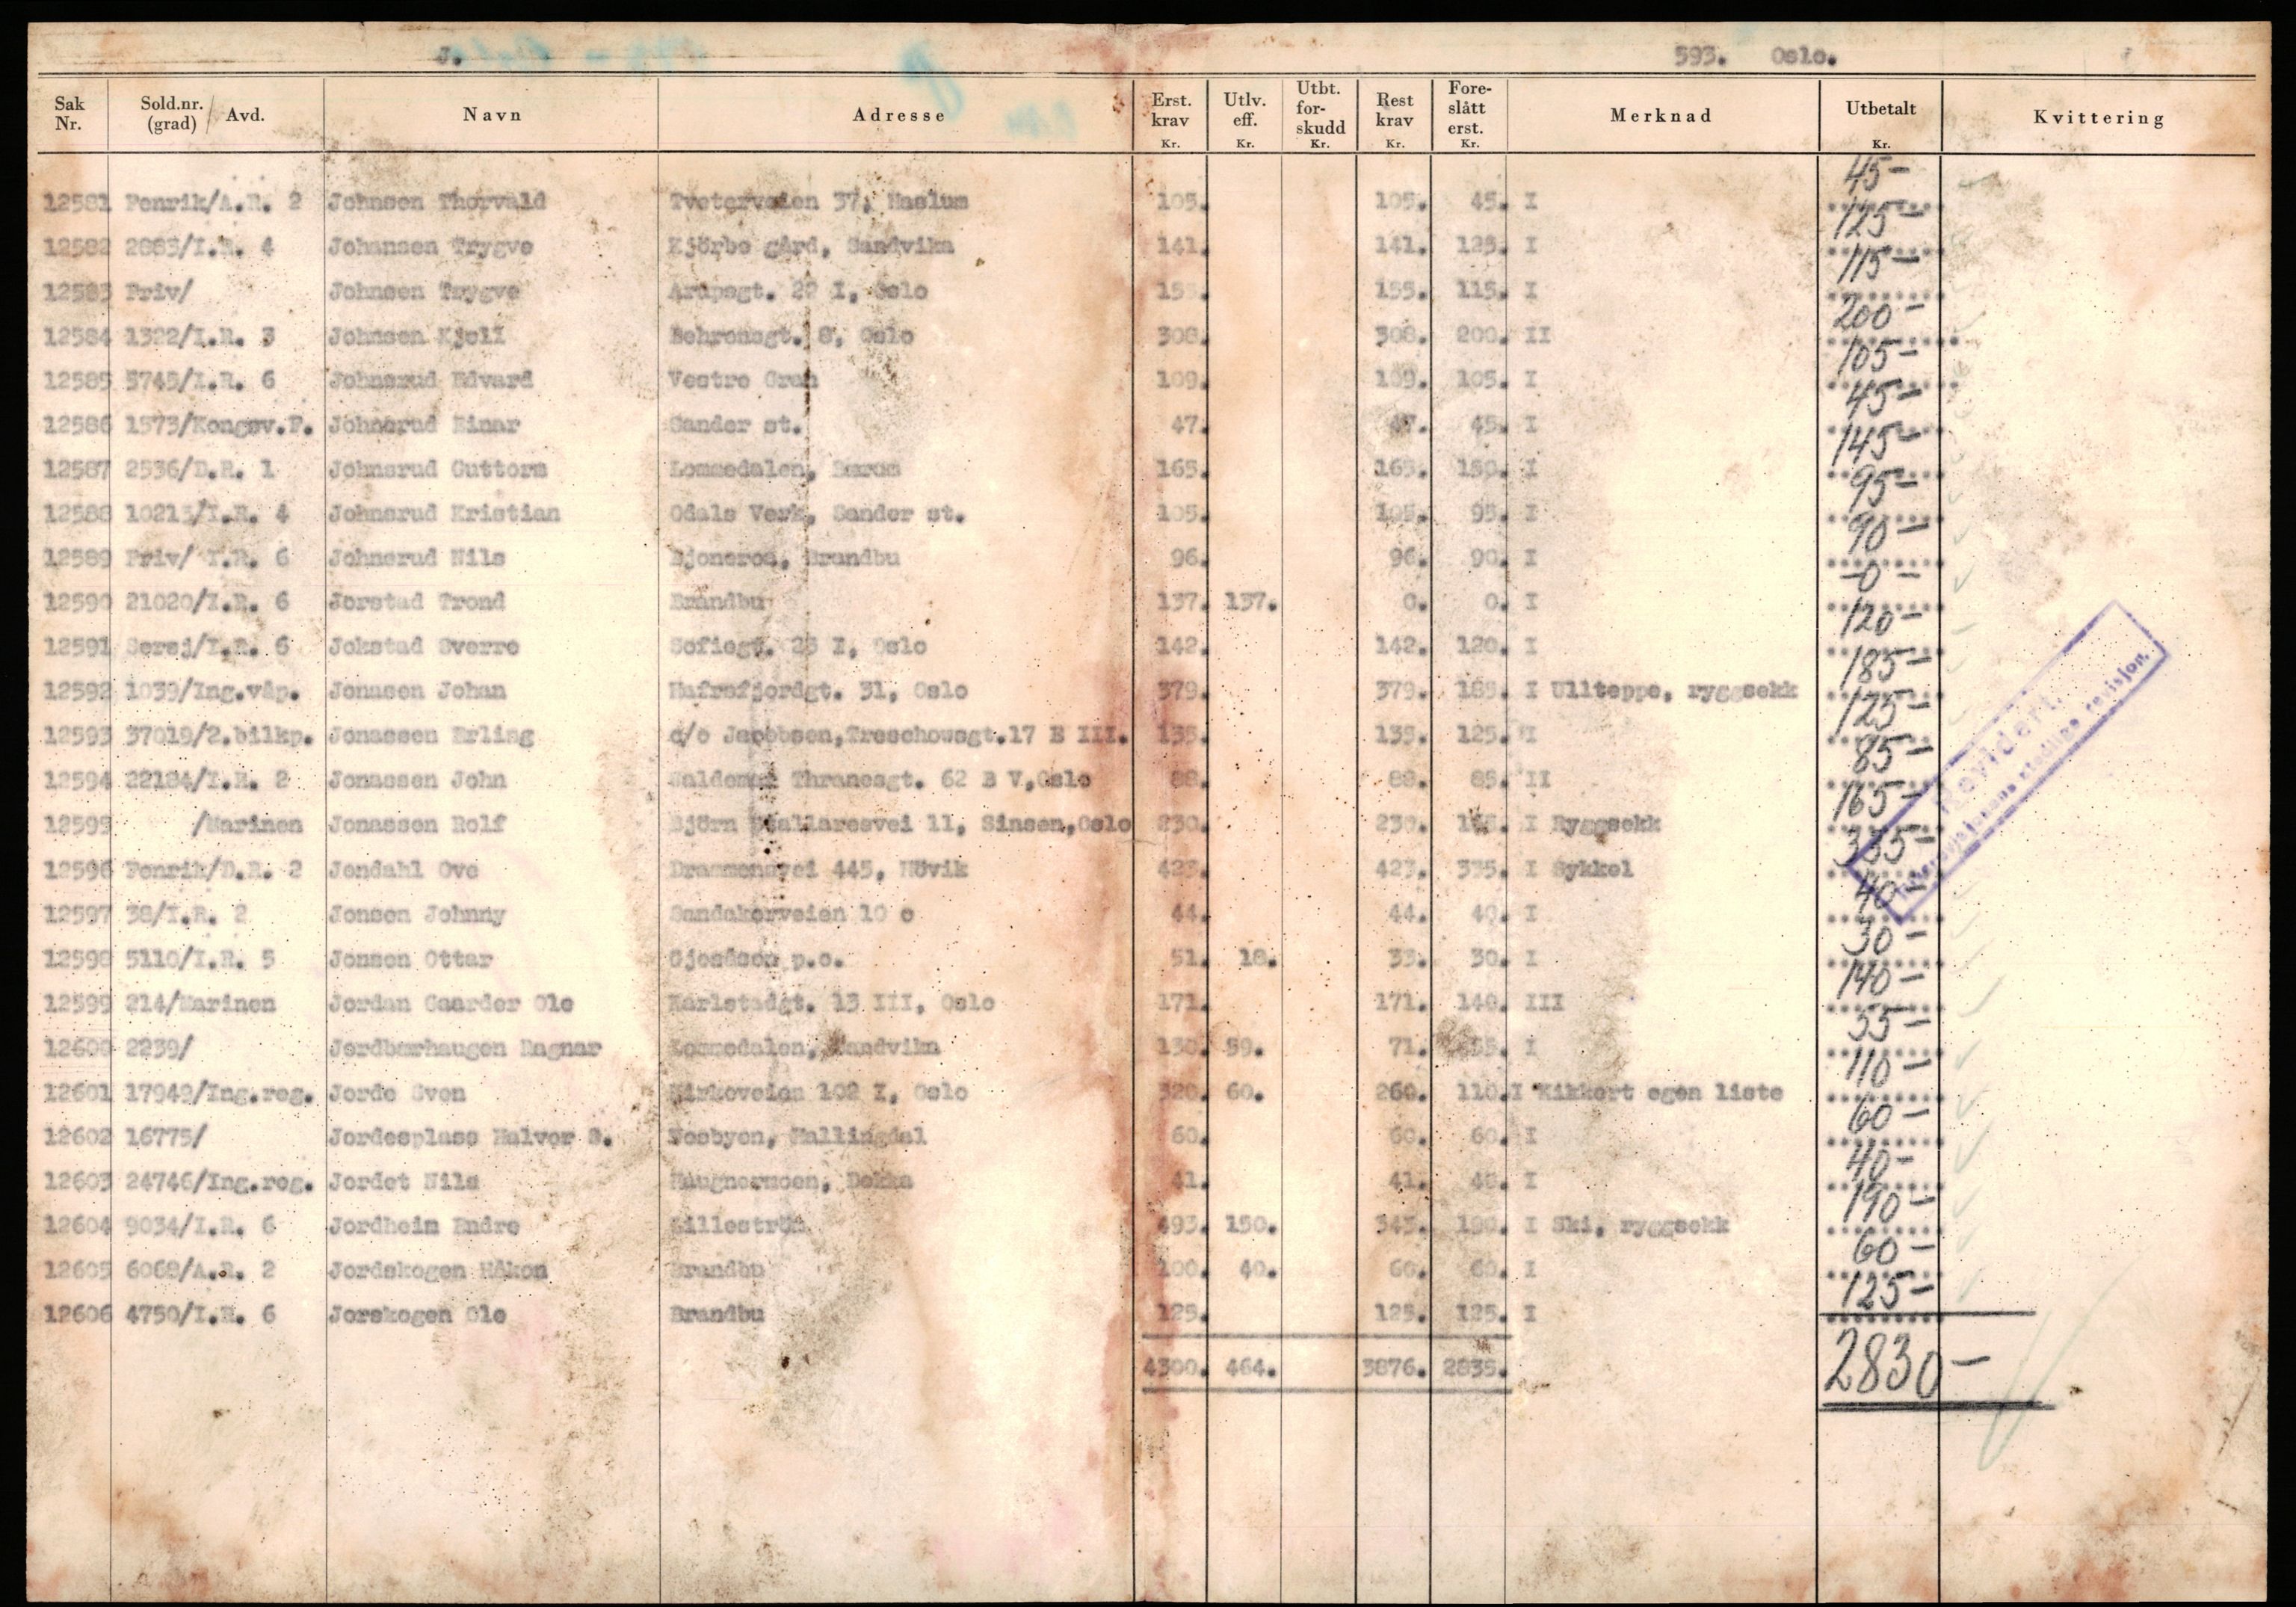 J. 593. Oslo.
Sak Nr. Sold.nr. (grad) / Avd. Navn Adresse Erst. krav Kr. Utlv. eff. Kr. Utbt. for- skudd Kr. Rest krav Kr. Fore- slått erst. Kr. Merknad Utbetalt Kr. Kvittering
12581 Fenrik/A.R. 2 Johnsen Thorvald Tveterveien 37, Haslum 105. 105. 45. I 45-
12582 2883/I.R. 4 Johansen Trygve Kjörbo gård, Sandvika 141. 141. 125. I 125-
12583 Priv/ Johnsen Trygve Arupsgt. I, Oslo 155. 155. 115. I 115-
12584 1322/I.R. 3 Johnsen Kjell Behrensgt. 8, Oslo 308. 308. 200. II 200-
12585 5745/I.R. 6 Johnsrud Edvard Vestre Gran 109. 109. 105. I 105-
12586 1573/Kongsv.F. Johnsrud Einar Sander st. 47. 47. 45. I 45-
12587 2536/D.R. 1 Johnsrud Guttorm Lommedalen, Bærum 165. 165. 150. I 145-
12588 10213/I.R. 4 Johnsrud Kristian Odals Verk, Sander st. 105. 105. 95. I 95-
12589 Priv/ I.R. 6 Johnsrud Nils Bjoneroa, Brandbu 96. 96. 90. I 90-
12590 21020/I.R. 6 Jorstad Trond Brandbu 137. 137. 0. 0. I -0-
12591 Sersj/I.R. 6 Jokstad Sverre Sofiegt. 23 I, Oslo 142. 142. 120. I 120-
12592 1039/Ing.våp. Jonasen Johan Hafrsfjordgt. 31, Oslo 379. 379. 185. I Ullteppe, ryggsekk 185-
12593 37019/2.bilkp. Jonassen Erling c/o Jacobsen,Treschowsgt.17 E III. 135. 135. 125. I 125-
12594 22184/I.R. 2 Jonassen John Waldemar Thranesgt. 62 B V,Oslo 88. 88. 85. II 85-
12595 /Marinen Jonassen Rolf Björn Stallaresvei 11, Sinsen,Oslo 230. 230. 165. I Ryggsekk 165-
12596 Fenrik/D.R. 2 Jondahl Ove Drammensvei 445, Hövik 423. 423. 335. I Sykkel 335-
12597 38/I.R. 2 Jonsen Johnny Sandakerveien 10 c 44. 44. 40. I 40-
12598 5110/I.R. 5 Jonsen Ottar Gjesåsen p.o. 51. 18. 33. 30. I 30-
12599 214/Marinen Jordan Gaarder Ole Karlstadgt. 13 III, Oslo 171. 171. 140. III 140-
12600 2239/ Jordbærhaugen Ragnar Lommedalen, Sandvika 130. 59. 71. 55. I 55-
12601 17949/Ing.reg. Jorde Sven Kirkeveien 102 I, Oslo 320. 60. 260. 110. I Kikkert egen liste 110-
12602 16775/ Jordesplass Halvor S. Nesbyen, Hallingdal 60. 60. 60. I 60-
12603 24746/Ing.reg. Jordet Nils Haugnermoen, Dokka 41. 41. 40. I 40-
12604 9034/I.R. 6 Jordheim Endre Lilleström 493. 150. 343. 190. I Ski, ryggsekk 190-
12605 6068/A.R. 2 Jordskogen Håkon Brandbu 100. 40. 60. 60. I 60-
12606 4750/I.R. 6 Jorskogen Ole Brandbu 125. 125. 125. I 125-
4300. 464. 3876. 2835. 2830-
Revidert.
stedlige revisjon.